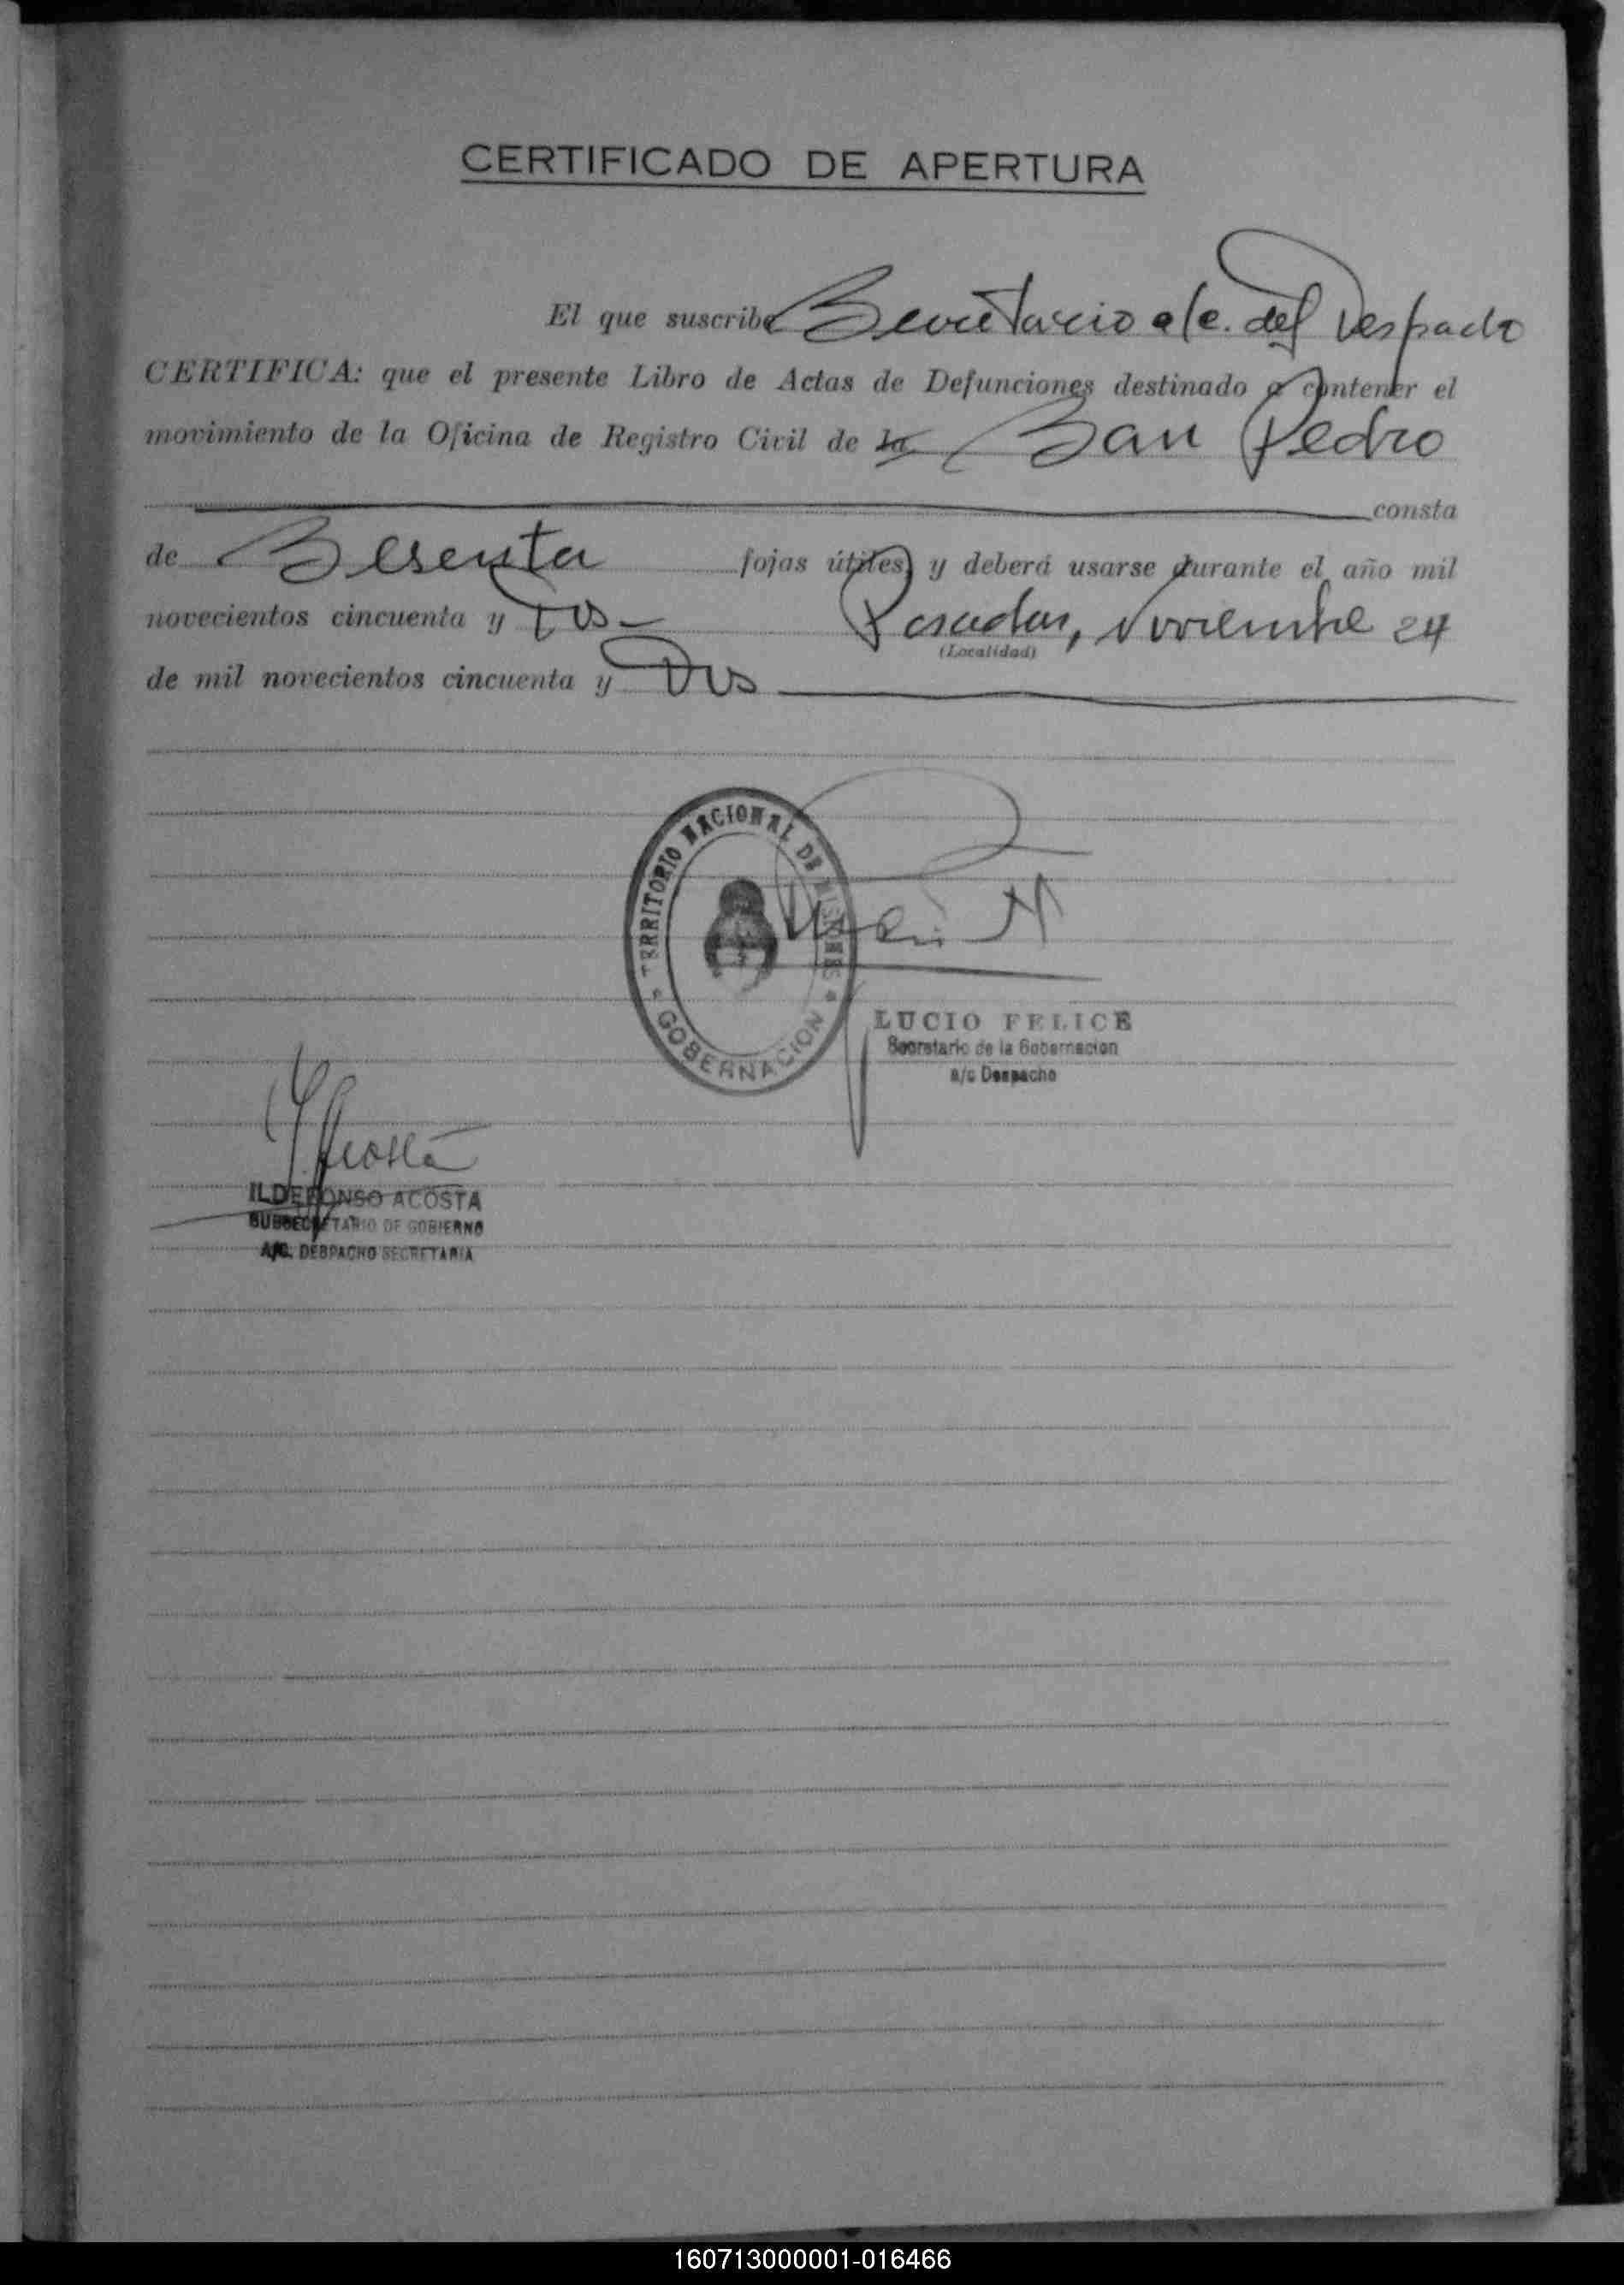 CERTIFICADO DE APERTURA
El que suscribe Secretario a/c. del Despacho
CERTIFICA: que el presente Libro de Actas de Defunciones destinado a contener el
movimiento de la Oficina de Registro Civil de la San Pedro
consta
de Sesenta fojas útiles, y deberá usarse durante el año mil
novecientos cincuenta y Tres Posadas, Noviembre 24
(Localidad)
de mil novecientos cincuenta y Dos
TERRITORIO NACIONAL DE MISIONES
* GOBERNACION *
LUCIO FELICE
Secretario de la Gobernacion
a/c Despacho
Acosta
ILDEFONSO ACOSTA
SUBSECRETARIO DE GOBIERNO
A/C. DESPACHO SECRETARIA
160713000001-016466